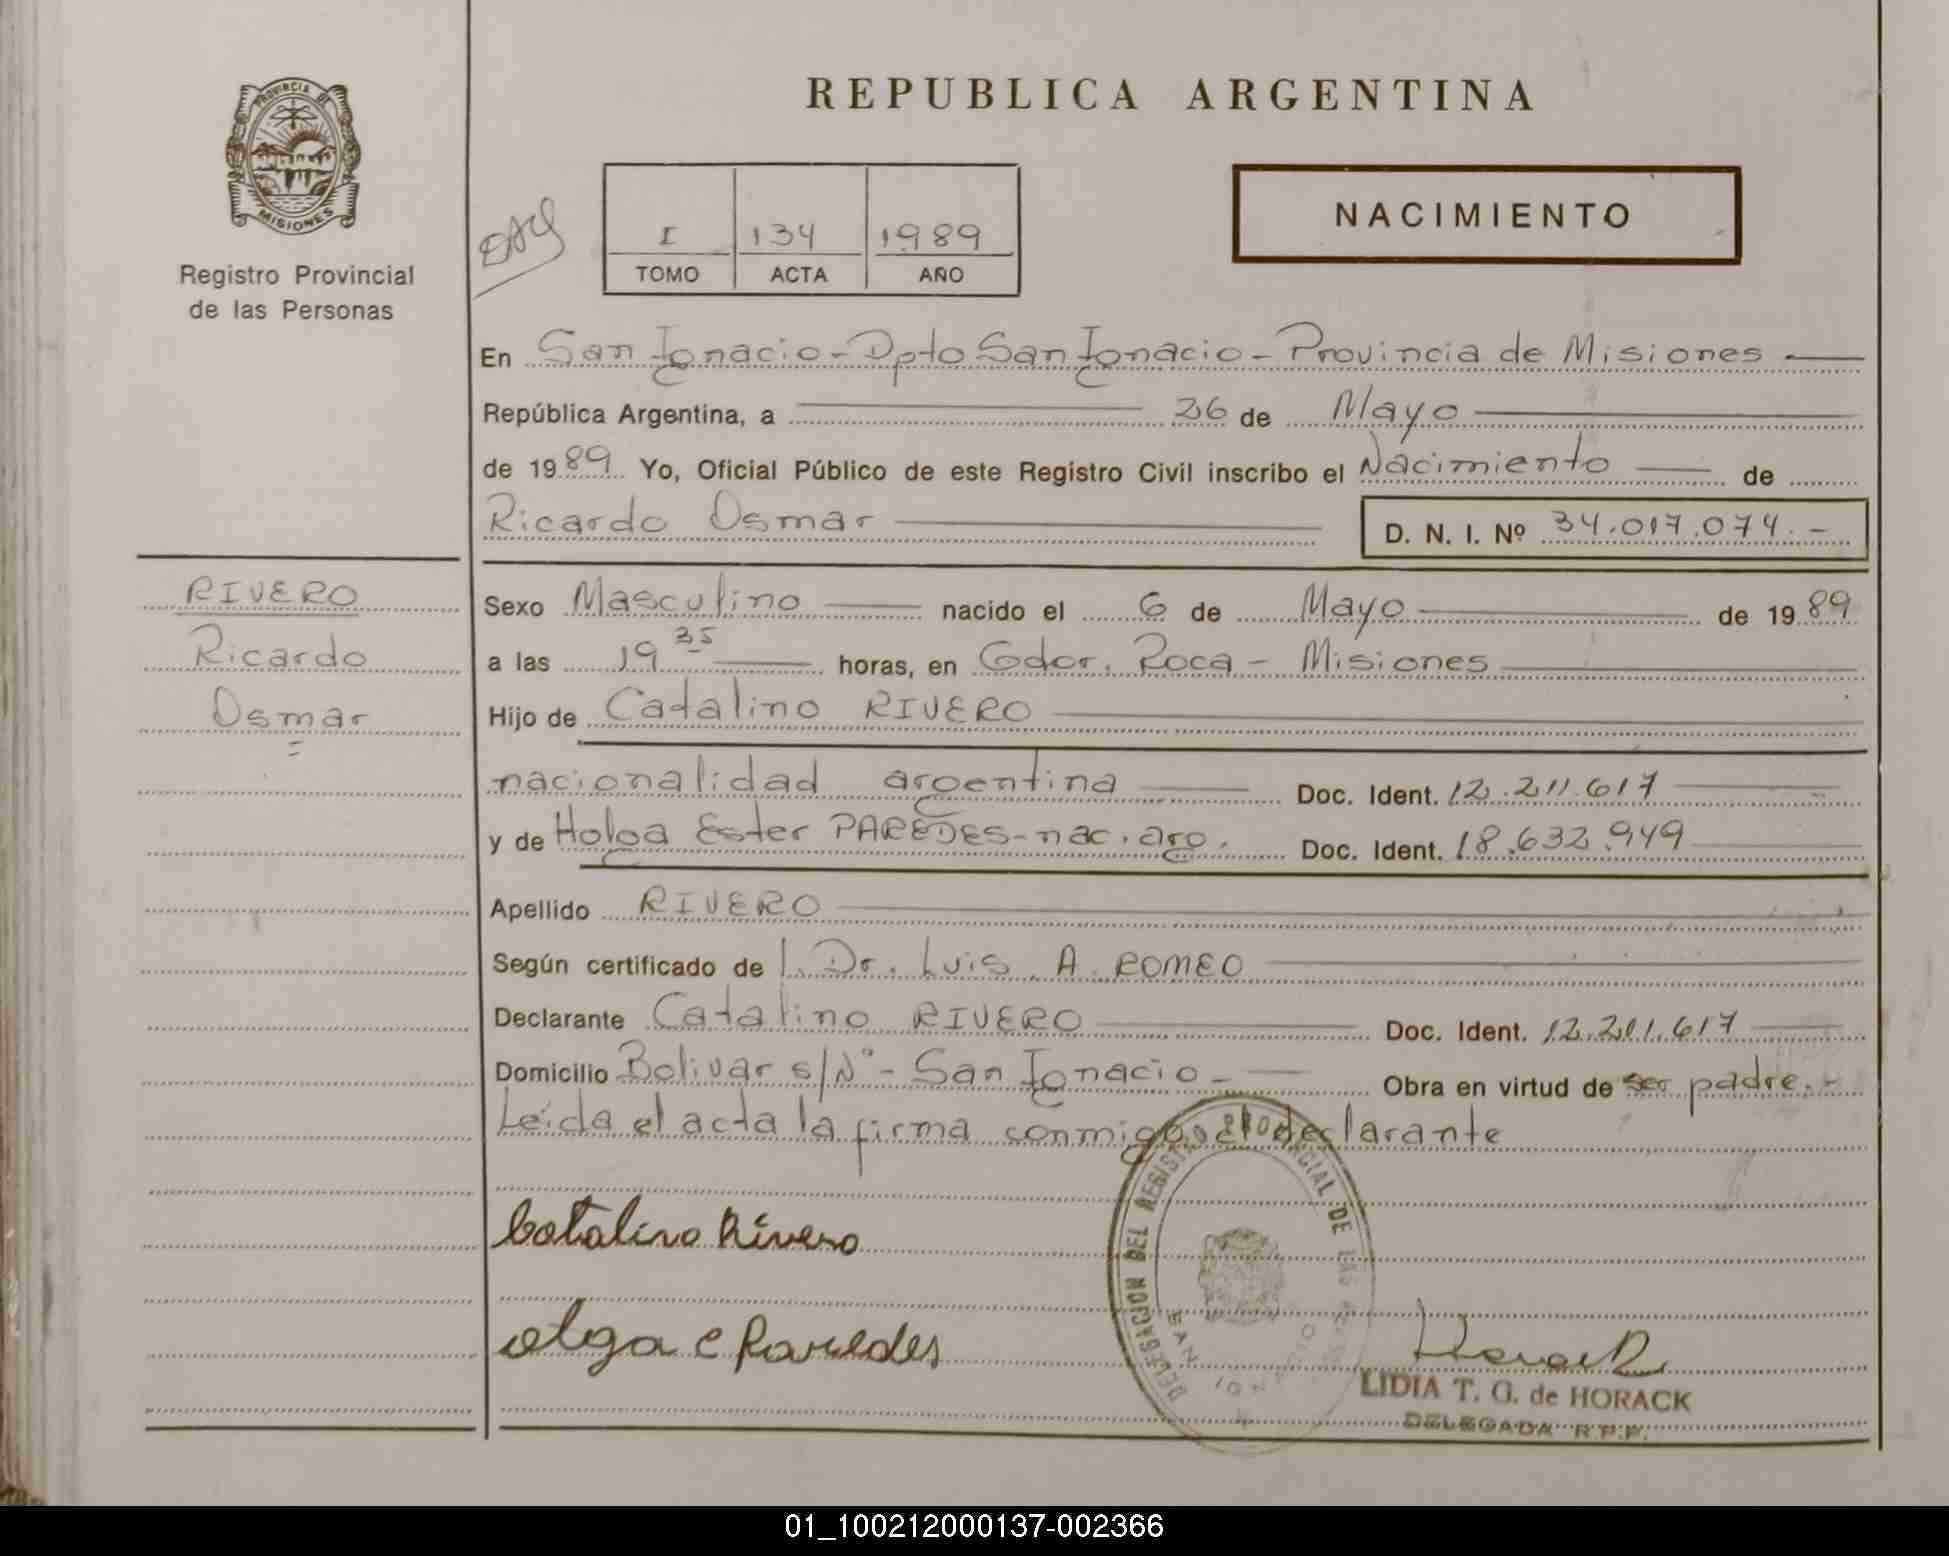 PROVINCIA DE
MISIONES
Registro Provincial
de las Personas
REPUBLICA ARGENTINA
I 134 1989
TOMO ACTA AÑO
NACIMIENTO
En San Ignacio - Dpto San Ignacio - Provincia de Misiones
República Argentina, a 26 de Mayo
de 1989 Yo, Oficial Público de este Registro Civil inscribo el Nacimiento de
Ricardo Osmar D. N. I. Nº 34.017.074.-
RIVERO
Ricardo
Osmar
Sexo Masculino nacido el 6 de Mayo de 1989
a las 19 35 horas, en Gdor. Roca - Misiones
Hijo de Catalino RIVERO
nacionalidad argentina Doc. Ident. 12.211.617
y de Holga Ester PAREDES - nac. arg. Doc. Ident. 18.632.949
Apellido RIVERO
Según certificado de l. Dr. Luis A. ROMEO
Declarante Catalino RIVERO Doc. Ident. 12.201.617
Domicilio Bolivar s/Nº - San Ignacio - Obra en virtud de ser padre.-
Leída el acta la firma conmigo el declarante
Catalino Rivero
Olga E Paredes
DELEGACION DEL REGISTRO PROVINCIAL DE LAS
SAN IGNACIO
Horack
LIDIA T. G. de HORACK
DELEGADA R.P.P.
01_100212000137-002366